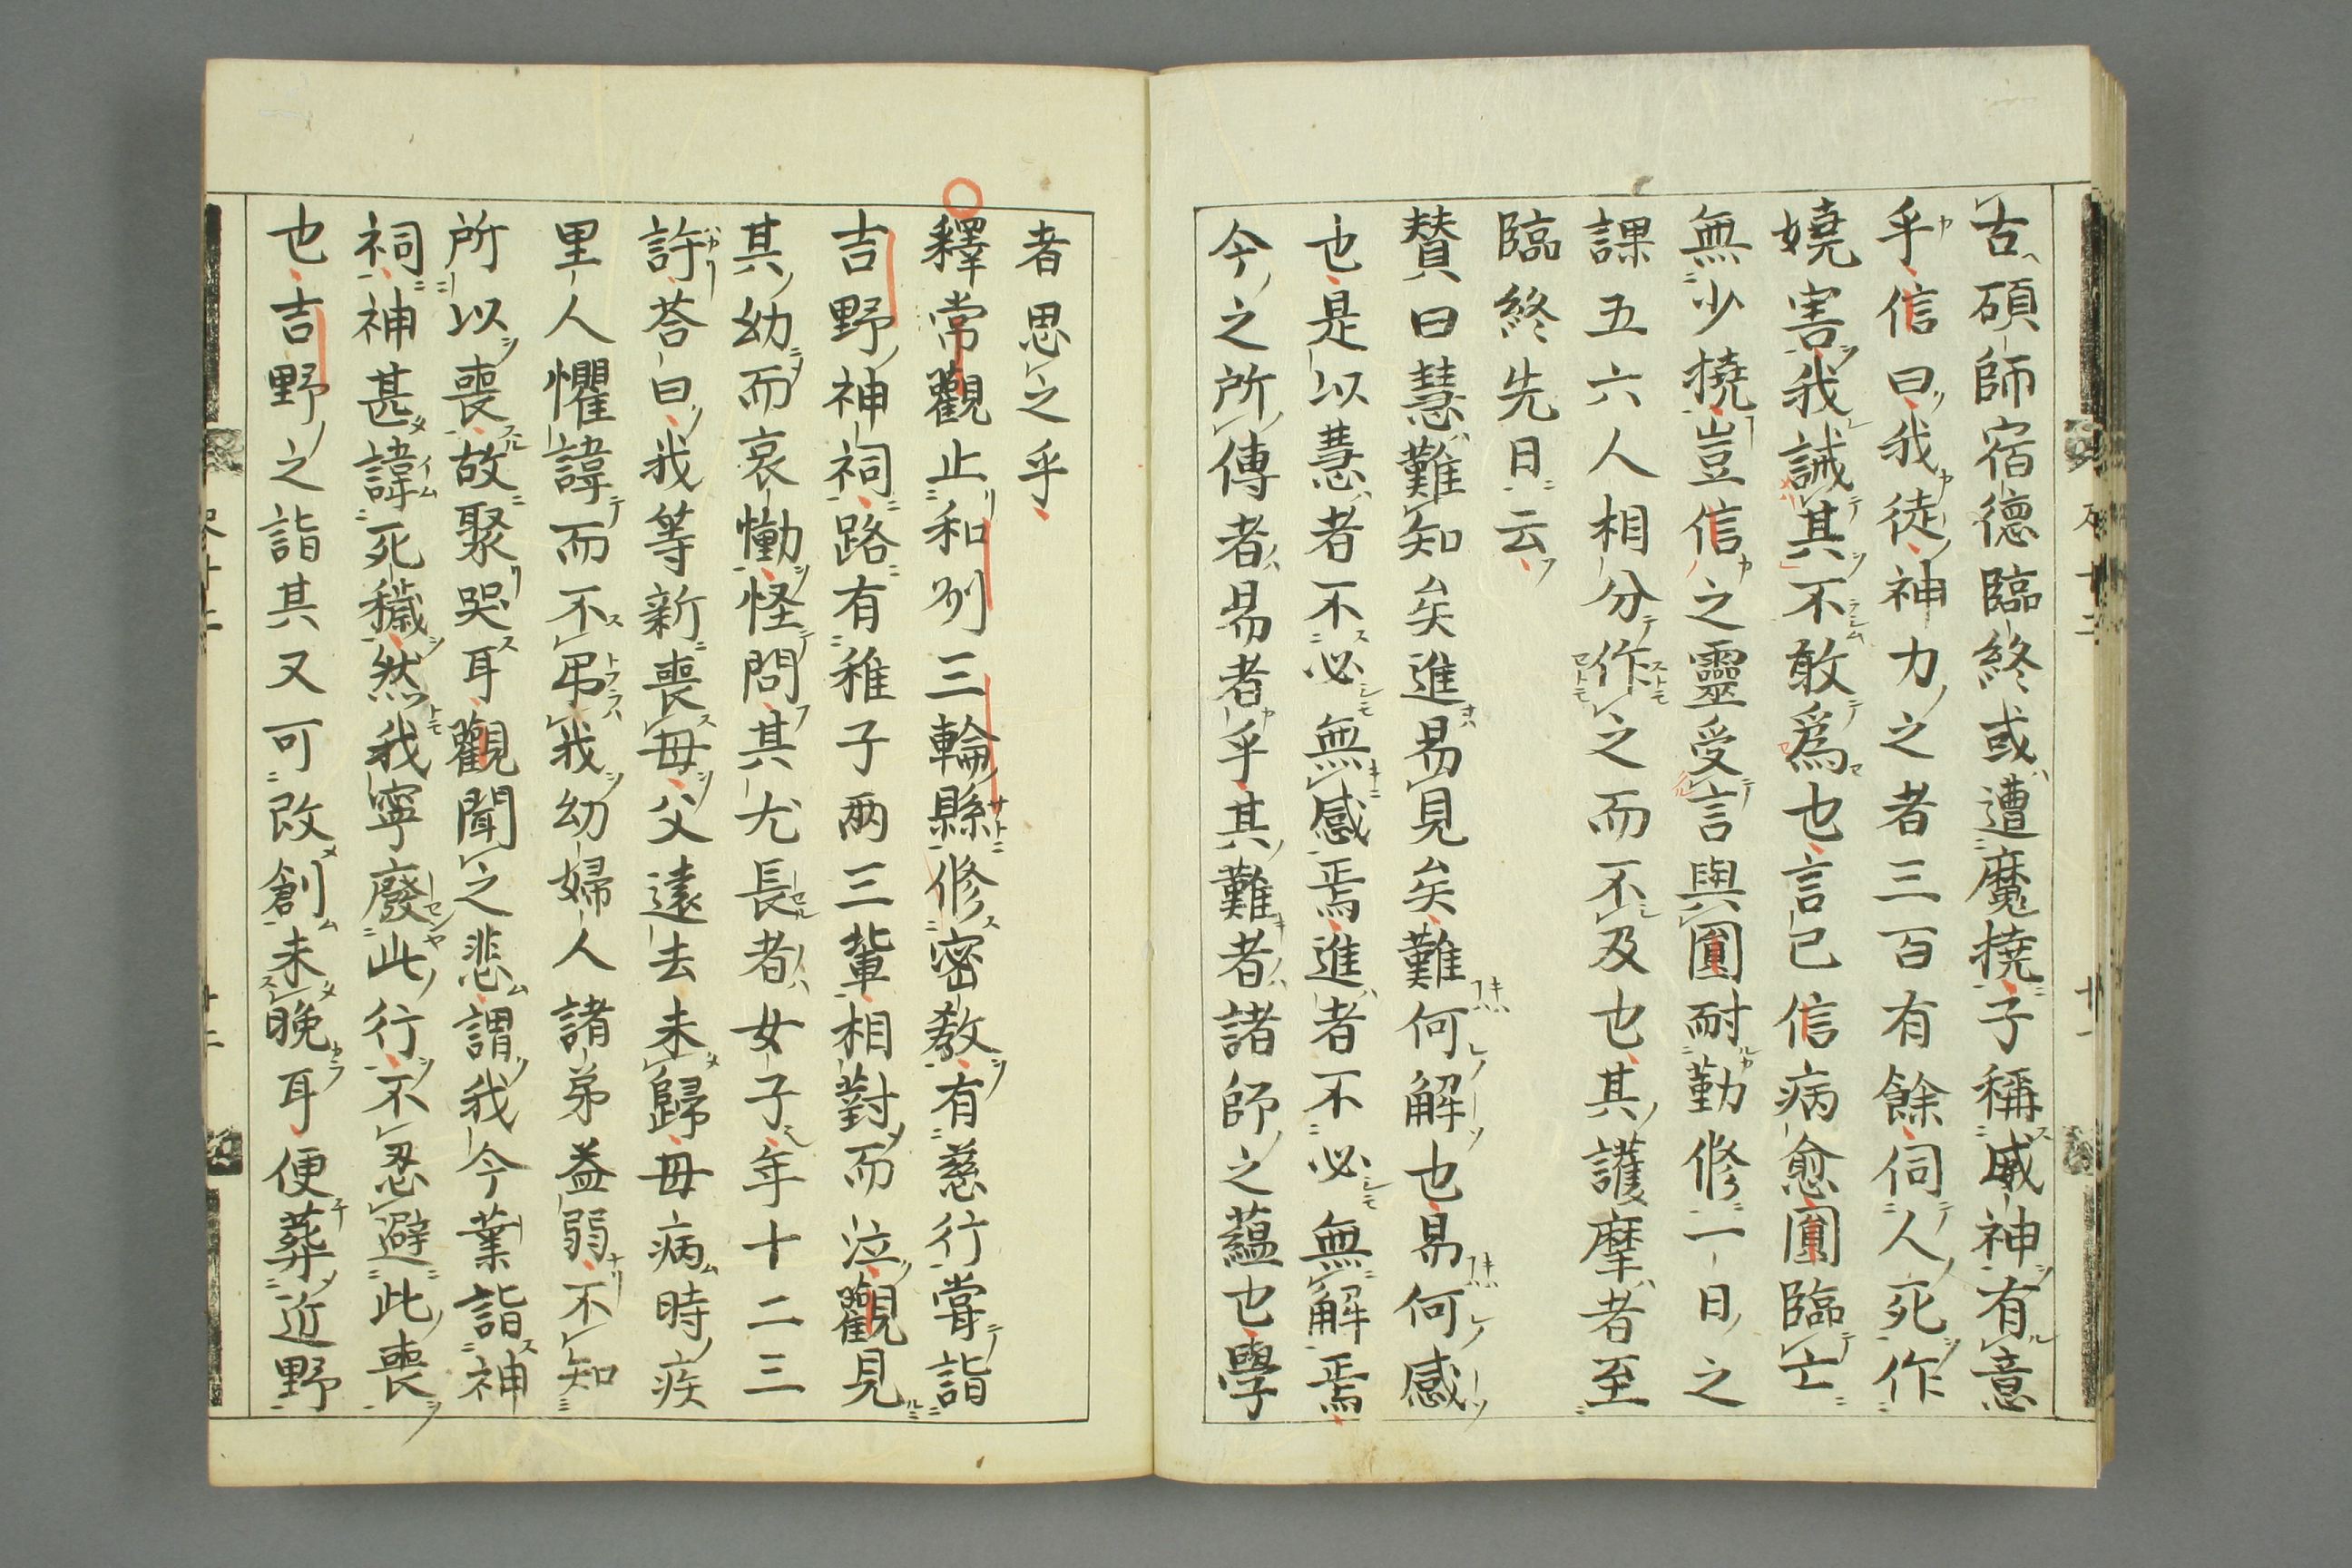 古碩師宿德臨終或遭魔撓子稱威神有意
乎信曰我徒神力之者三百有餘伺人死作
嬈害我誡其不敢爲也言已信病愈圓臨亡
無少撓豈信之靈受言與圓耐勤修一日之
課五六人相分作之而不及也其護摩者至
臨終先日云
賛曰慧難知矣進易見矣難何解也易何感
也是以慧者不必無感焉進者不必無解焉
今之所傳者易者乎其難者諸師之蘊也學
者思之乎
釋常觀止和刕三輪縣修密教有慈行甞詣
吉野神祠路有稚子兩三輩相對而泣觀見
其幼而哀慟怪問其尤長者女子年十二三
許荅曰我等新喪母父遠去未歸母病時疾
里人懼諱而不弔我幼婦人諸弟益弱不知
所以喪故聚哭耳觀聞之悲謂我今業詣神
祠神甚諱死穢然我寧廢此行不忍避此喪
也吉野之詣其又可改創未晚耳便葬近野